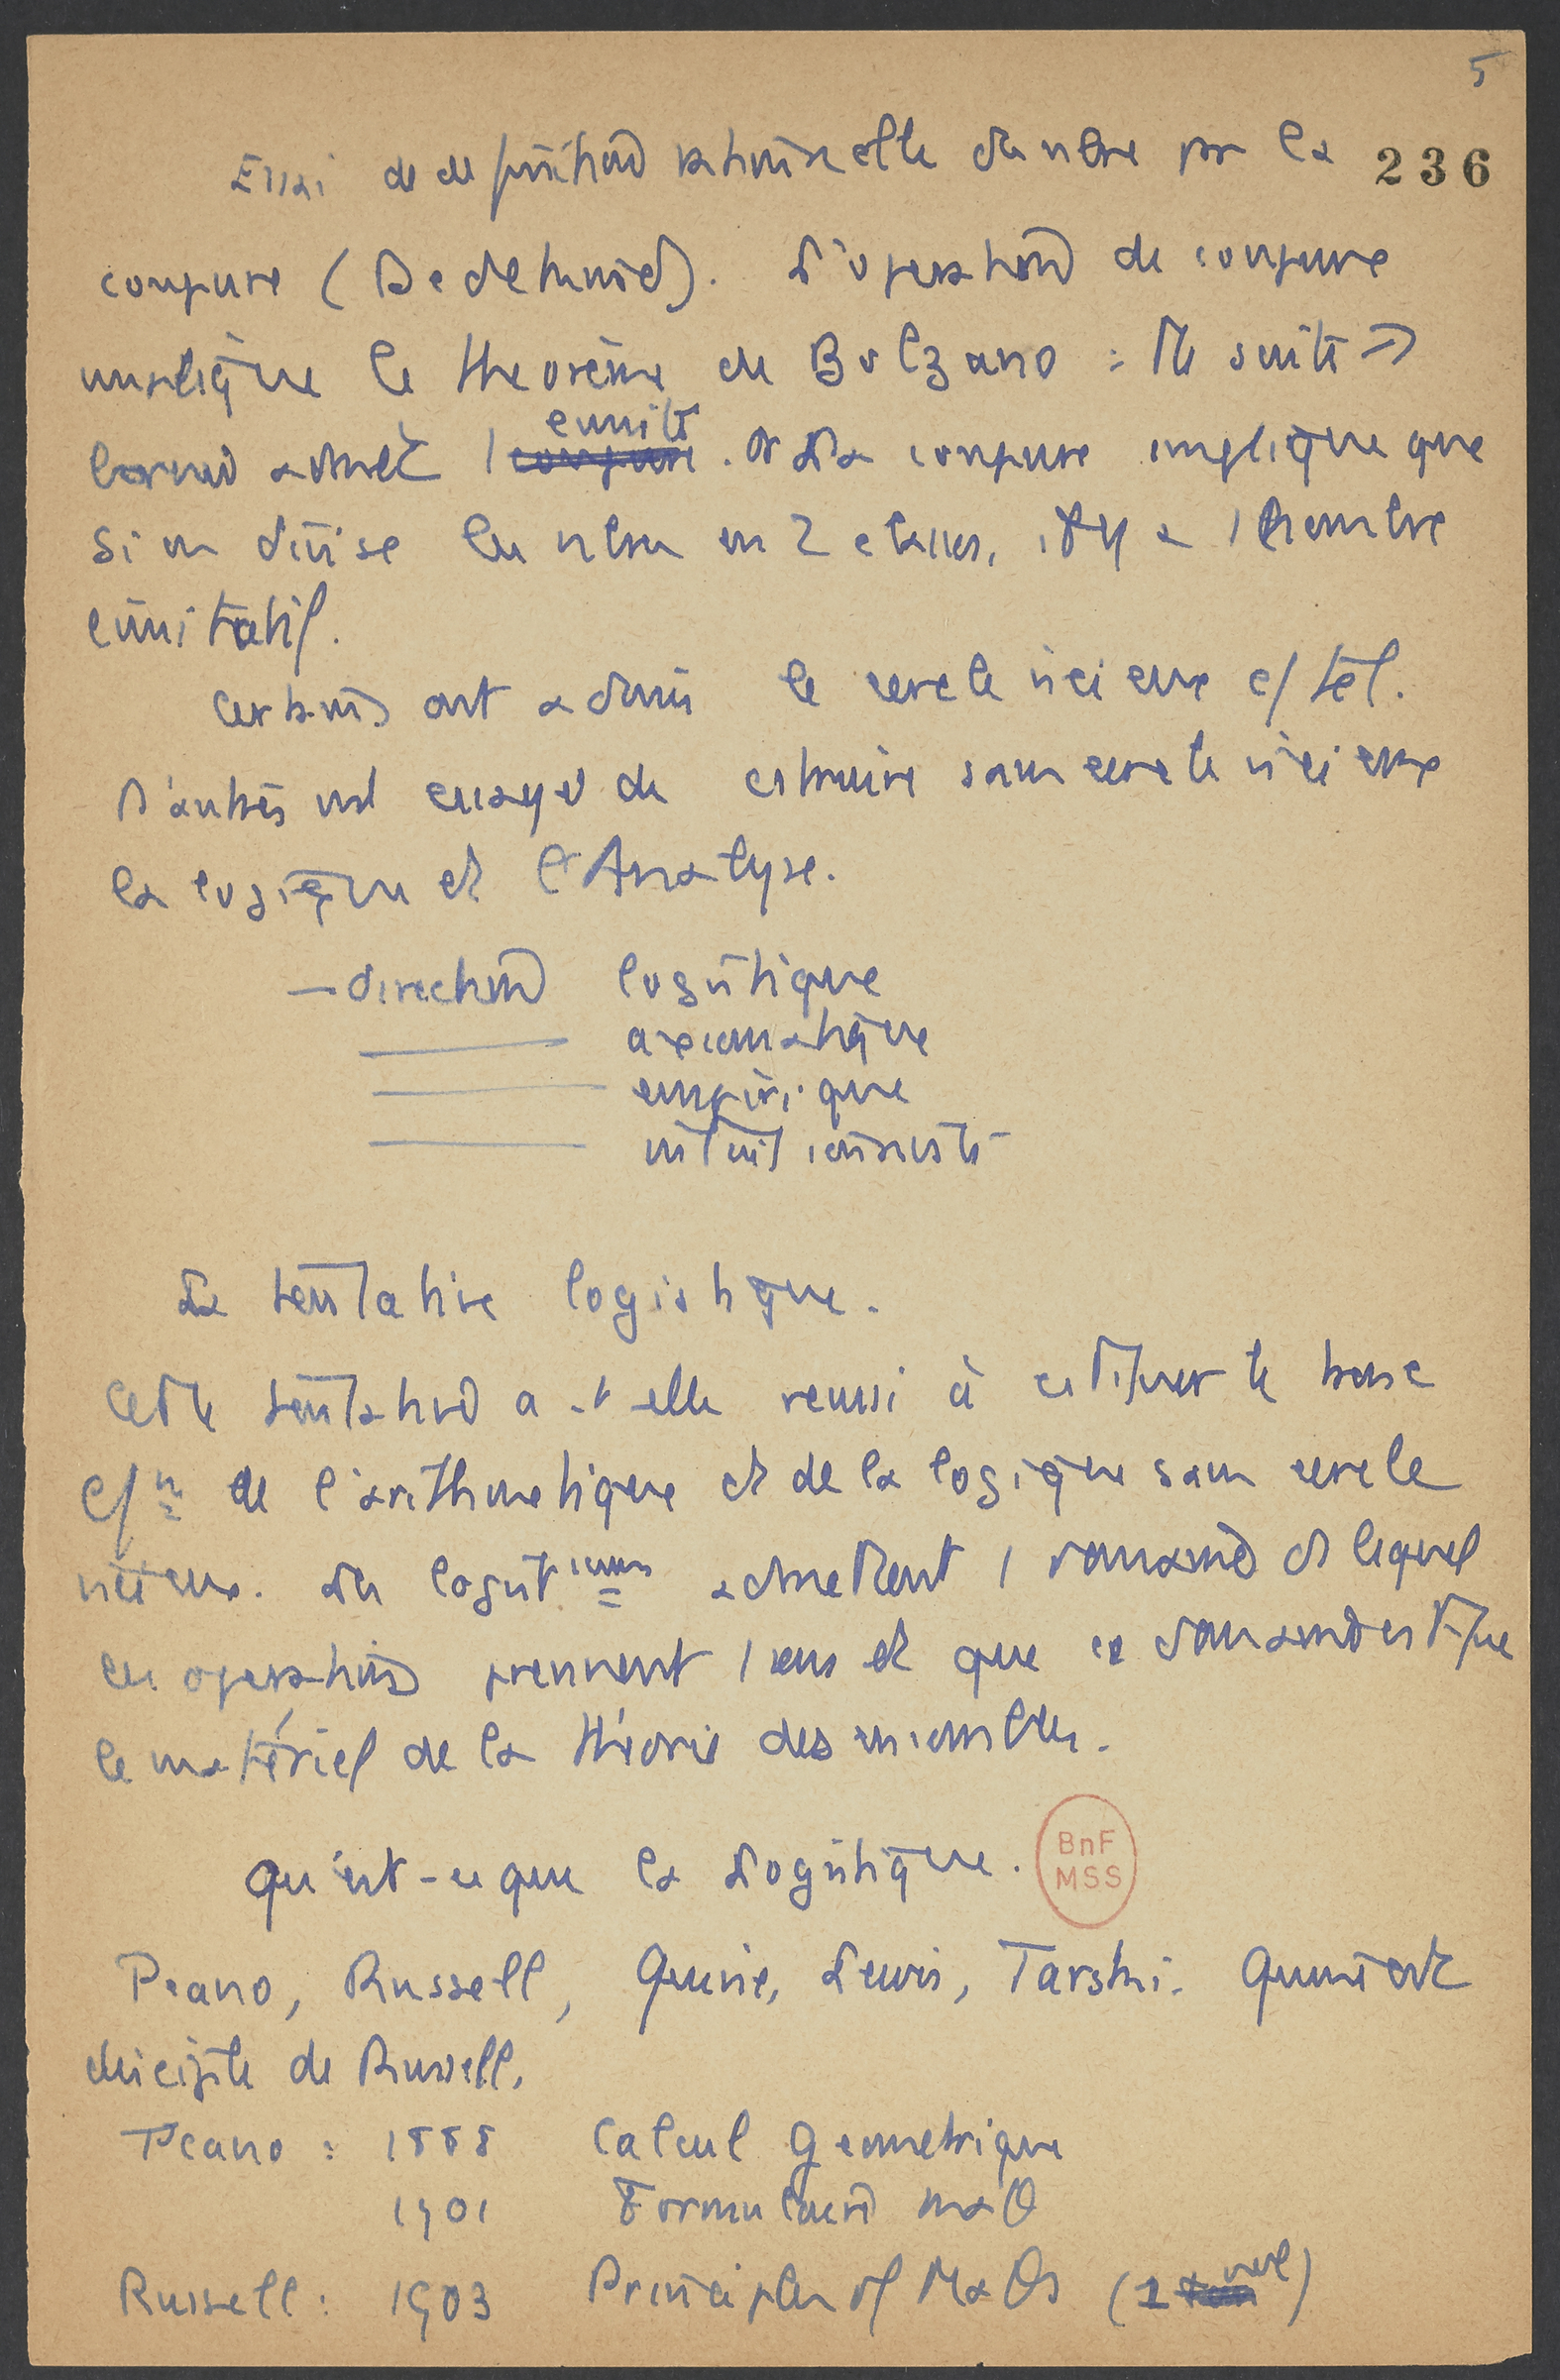 5
Essai de definition rationnelle du nbre par la 236
coupure (Dedekind). L'operation de coupure
implique le theorème de Bolzano : Tte suite
borné admet 1 limite. La coupure implique que
si on divise les nbres en 2 classes, il y a 1 nombre
limitatif.
Certains ont admis le cercle vicieux c/ tel.
D'autres ont essayé de cstruire sans cercle vicieux
la logique et l'Analyse.
— direction logistique
axiomatique
empirique
intuitionniste
La tentative logistique.
Cette tentative a-t-elle reussi à cstituer la base
de l'arithmetique et de la logique sans cercle
vicieux. Les admettent 1 domaine ds lequel
ces operations prennent 1 sens et que ce domaine cstitue
le matériel de la théorie des ensembles.
Qu'est-ce que la Logistique.
Peano, Russell, Quine, Lewis, Tarski. Quine est
disciple de Russell.
Peano : 1888 Calcul geometrique
1901 Formulaire maθ
Russell : 1903 Principles of Maθs (1 vol)
BnF
MSS